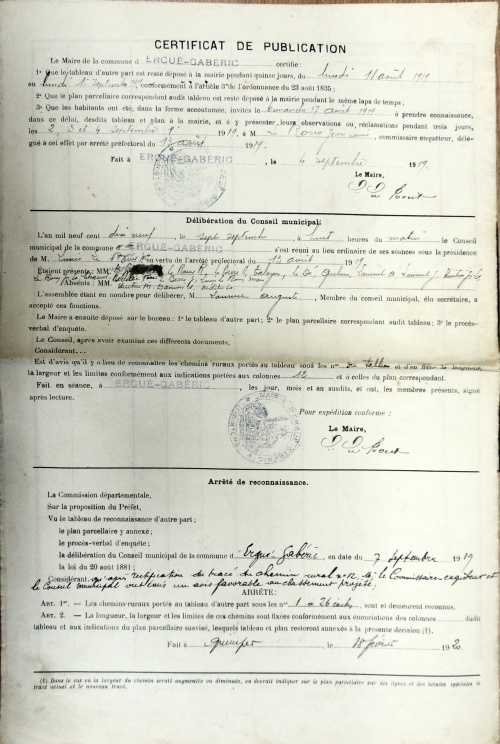 CERTIFICAT DE PUBLICATION
Le Maire de la commune d ERGUÉ-GABÉRIC certifie :
1° Que le tableau d'autre part est resté déposé à la mairie pendant quinze jours, du lundi 18 août 1919
au lundi 1er septembre 1919, conformément à l'article 3 de l'ordonnance du 23 août 1835 ;
2° Que le plan parcellaire correspondant audit tableau est resté déposé à la mairie pendant le même laps de temps ;
3° Que les habitants ont été, dans la forme accoutumée, invités le dimanche 17 août 1919 à prendre connaissance,
dans ce délai, desdits tableau et plan à la mairie, et à y présenter leurs observations ou réclamations pendant trois jours,
les 2, 3 et 4 septembre 1919, à M. Le commissaire enquêteur, délé-
gué à cet effet par arrêté préfectoral du août 1919.
Fait à ERGUÉ-GABÉRIC, le 4 septembre 1919.
Le Maire,
Délibération du Conseil municipal:
L'an mil neuf cent dix neuf, le sept septembre à huit heures du matin le Conseil
municipal de la commune d ERGUÉ-GABÉRIC s'est réuni au lieu ordinaire de ses séances sous la présidence
de M. en vertu de l'arrêté préfectoral du août 1919.
Étaient présents : MM.
Absents : MM.
L'assemblée étant en nombre pour délibérer, M. auguste, Membre du conseil municipal, élu secrétaire, a
accepté ces fonctions.
Le Maire a ensuite déposé sur le bureau : 1° le tableau d'autre part ; 2° le plan parcellaire correspondant audit tableau ; 3° le procès-
verbal d'enquête.
Le Conseil, après avoir examiné ces différents documents,
Considérant...
Est d'avis qu'il y a lieu de reconnaître les chemins ruraux portés au tableau sous les nos du tableau et d'en fixer la longueur,
la largeur et les limites conformément aux indications portées aux colonnes 12 et à celles du plan correspondant.
Fait en séance, à ERGUÉ-GABÉRIC, les jour, mois et an susdits, et ont, les membres présents, signé
après lecture.
Pour expédition conforme :
Le Maire,
Arrêté de reconnaissance.
La Commission départementale,
Sur la proposition du Préfet,
Vu le tableau de reconnaissance d'autre part ;
le plan parcellaire y annexé ;
le procès-verbal d'enquête ;
la délibération du Conseil municipal de la commune d'Ergué Gabéric, en date du 7 septembre 1919
la loi du 20 août 1881 ;
Considérant qu'après rectification du tracé du chemin rural n° 12, le Commissaire enquêteur et
le Conseil municipal ont émis un avis favorable au classement projeté,
ARRÊTE :
ART. 1er. — Les chemins ruraux portés au tableau d'autre part sous les nos 1 à 26 inclus, sont et demeurent reconnus.
ART. 2. — La longueur, la largeur et les limites de ces chemins sont fixées conformément aux énonciations des colonnes dudit
tableau et aux indications du plan parcellaire susvisé, lesquels tableau et plan resteront annexés à la présente décision (1).
Fait à Quimper, le 18 février 1920
(1) Dans le cas où la largeur du chemin serait augmentée ou diminuée, on devrait indiquer sur le plan parcellaire par des lignes et des teintes spéciales le
tracé actuel et le nouveau tracé.